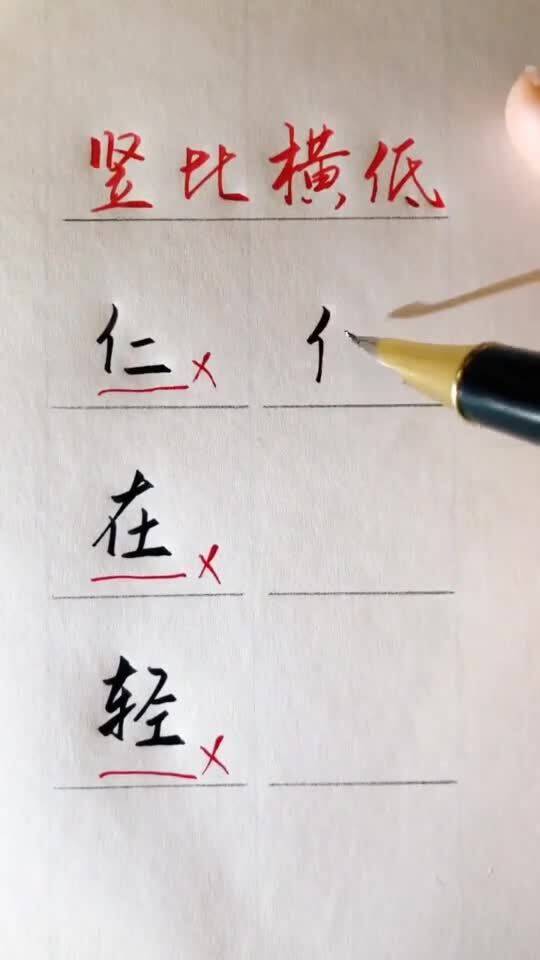 竖比横低
仁 × 亻
在 ×
轻 ×